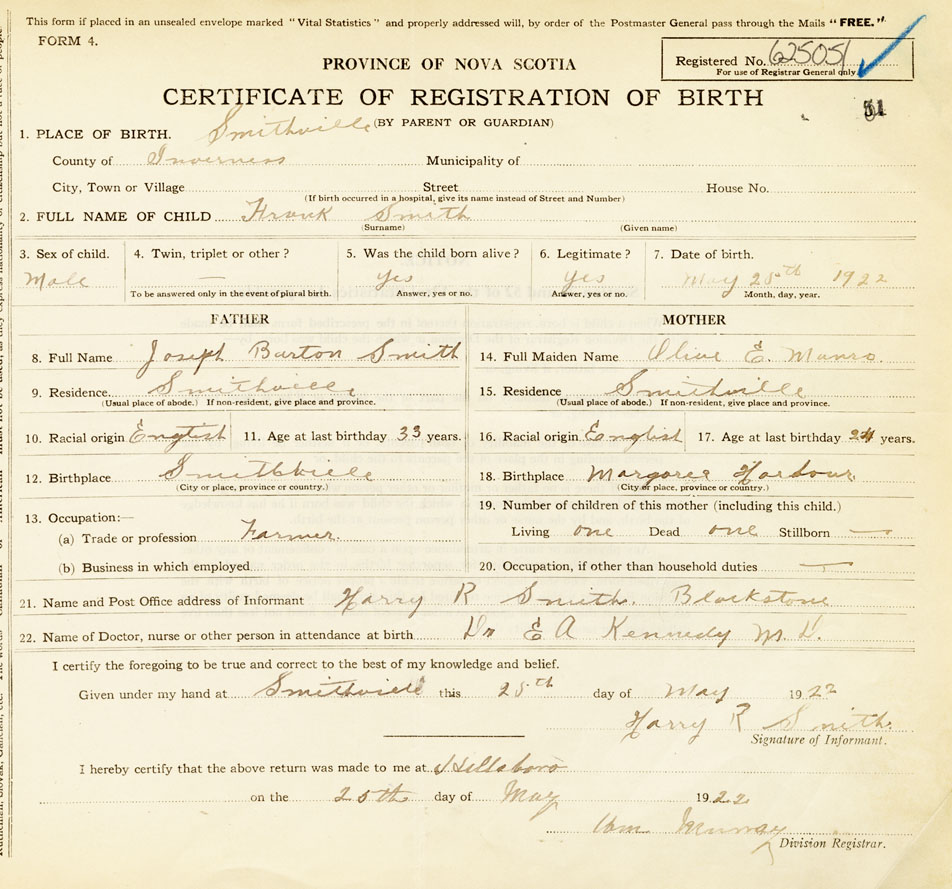 This form if placed in an unsealed envelope marked "Vital Statistics" and properly addressed will, by order of the Postmaster General pass through the Mails "FREE."
FORM 4.
Registered No. 625051
For use of Registrar General only
PROVINCE OF NOVA SCOTIA
CERTIFICATE OF REGISTRATION OF BIRTH
(BY PARENT OR GUARDIAN)
1. PLACE OF BIRTH. Smithville
County of Inverness Municipality of
City, Town or Village Street House No.
(If birth occurred in a hospital, give its name instead of Street and Number)
2. FULL NAME OF CHILD Frank Smith
(Surname) (Given name)
3. Sex of child. 4. Twin, triplet or other? 5. Was the child born alive? 6. Legitimate? 7. Date of birth.
Male — Yes Yes May 25th 1922
To be answered only in the event of plural birth. Answer, yes or no. Answer, yes or no. Month, day, year.
FATHER MOTHER
8. Full Name Joseph Burton Smith 14. Full Maiden Name Olive E. Munro
9. Residence Smithville 15. Residence Smithville
(Usual place of abode.) If non-resident, give place and province. (Usual place of abode.) If non-resident, give place and province.
10. Racial origin English 11. Age at last birthday 33 years. 16. Racial origin English 17. Age at last birthday 24 years.
12. Birthplace Smithville 18. Birthplace Margaree Harbour
(City or place, province or country.) (City or place, province or country.)
13. Occupation:— 19. Number of children of this mother (including this child.)
(a) Trade or profession Farmer. Living one Dead one Stillborn —
(b) Business in which employed 20. Occupation, if other than household duties —
21. Name and Post Office address of Informant Harry R Smith. Blackstone
22. Name of Doctor, nurse or other person in attendance at birth Dr E A Kennedy M.D.
I certify the foregoing to be true and correct to the best of my knowledge and belief.
Given under my hand at Smithville this 25th day of May 1922
Harry R Smith.
Signature of Informant.
I hereby certify that the above return was made to me at Hillsboro
on the 25th day of May 1922
Division Registrar.